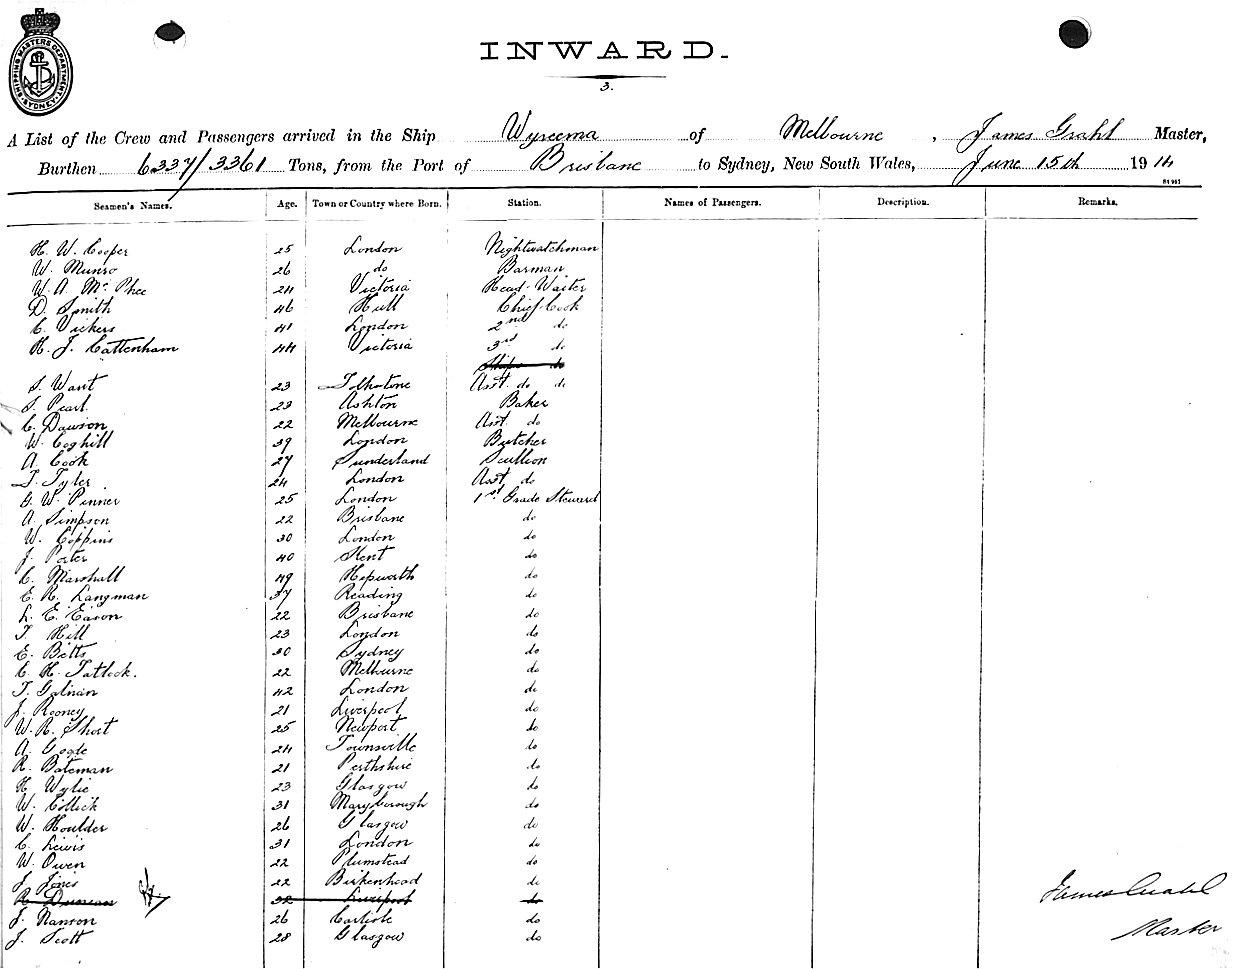 SHIPPING MASTERS DEPARTMENT. SYDNEY
INWARD.
3.
A List of the Crew and Passengers arrived in the Ship Wyreema of Melbourne, James Grahl Master,
Burthen 6337/3361 Tons, from the Port of Brisbane to Sydney, New South Wales, June 15th 1914
Seamen's Names. Age. Town or Country where Born. Station. Names of Passengers. Description. Remarks.
H. W. Cooper 25 London Nightwatchman
W. Munro 26 do Barman
W. A. McPhee 24 Victoria Head Waiter
D. Smith 46 Hull Chief Cook
C. Vickers 41 London 2nd do
H. J. Cattenham 44 Victoria 3rd do
Ships do
S. Want 23 Asst. do do
S. Pearl 23 Ashton Baker
C. Dawson 22 Melbourne Asst. do
W. Coghill 39 London Butcher
A. Cook 27 Sunderland Scullion
T. Tyler 24 London Asst. do
G. W. Pinner 25 London 1st Grade Steward
A. Simpson 22 Brisbane do
W. Coppins 30 London do
J. Porter 40 Kent do
C. Marshall 49 Hepworth do
E. R. Langman 37 Reading do
L. E. Eason 22 Brisbane do
T. Hill 23 London do
E. Betts 30 Sydney do
C. H. Tatlock. 22 Melbourne do
T. 42 London do
J. Rooney 21 Liverpool do
W. R. Short 25 Newport do
A. 24 Townsville do
R. Bateman 21 Perthshire do
H. Wylie 23 Glasgow do
W. Collick 31 Maryborough do
W. Houlder 26 Glasgow do
C. Lewis 31 London do
W. Owen 22 Plumstead do
J. Jones 22 Birkenhead do
R. Duncan 32 Liverpool do
J. Nanson 26 Carlisle do
J. Scott 28 Glasgow do
James Grahl
Master